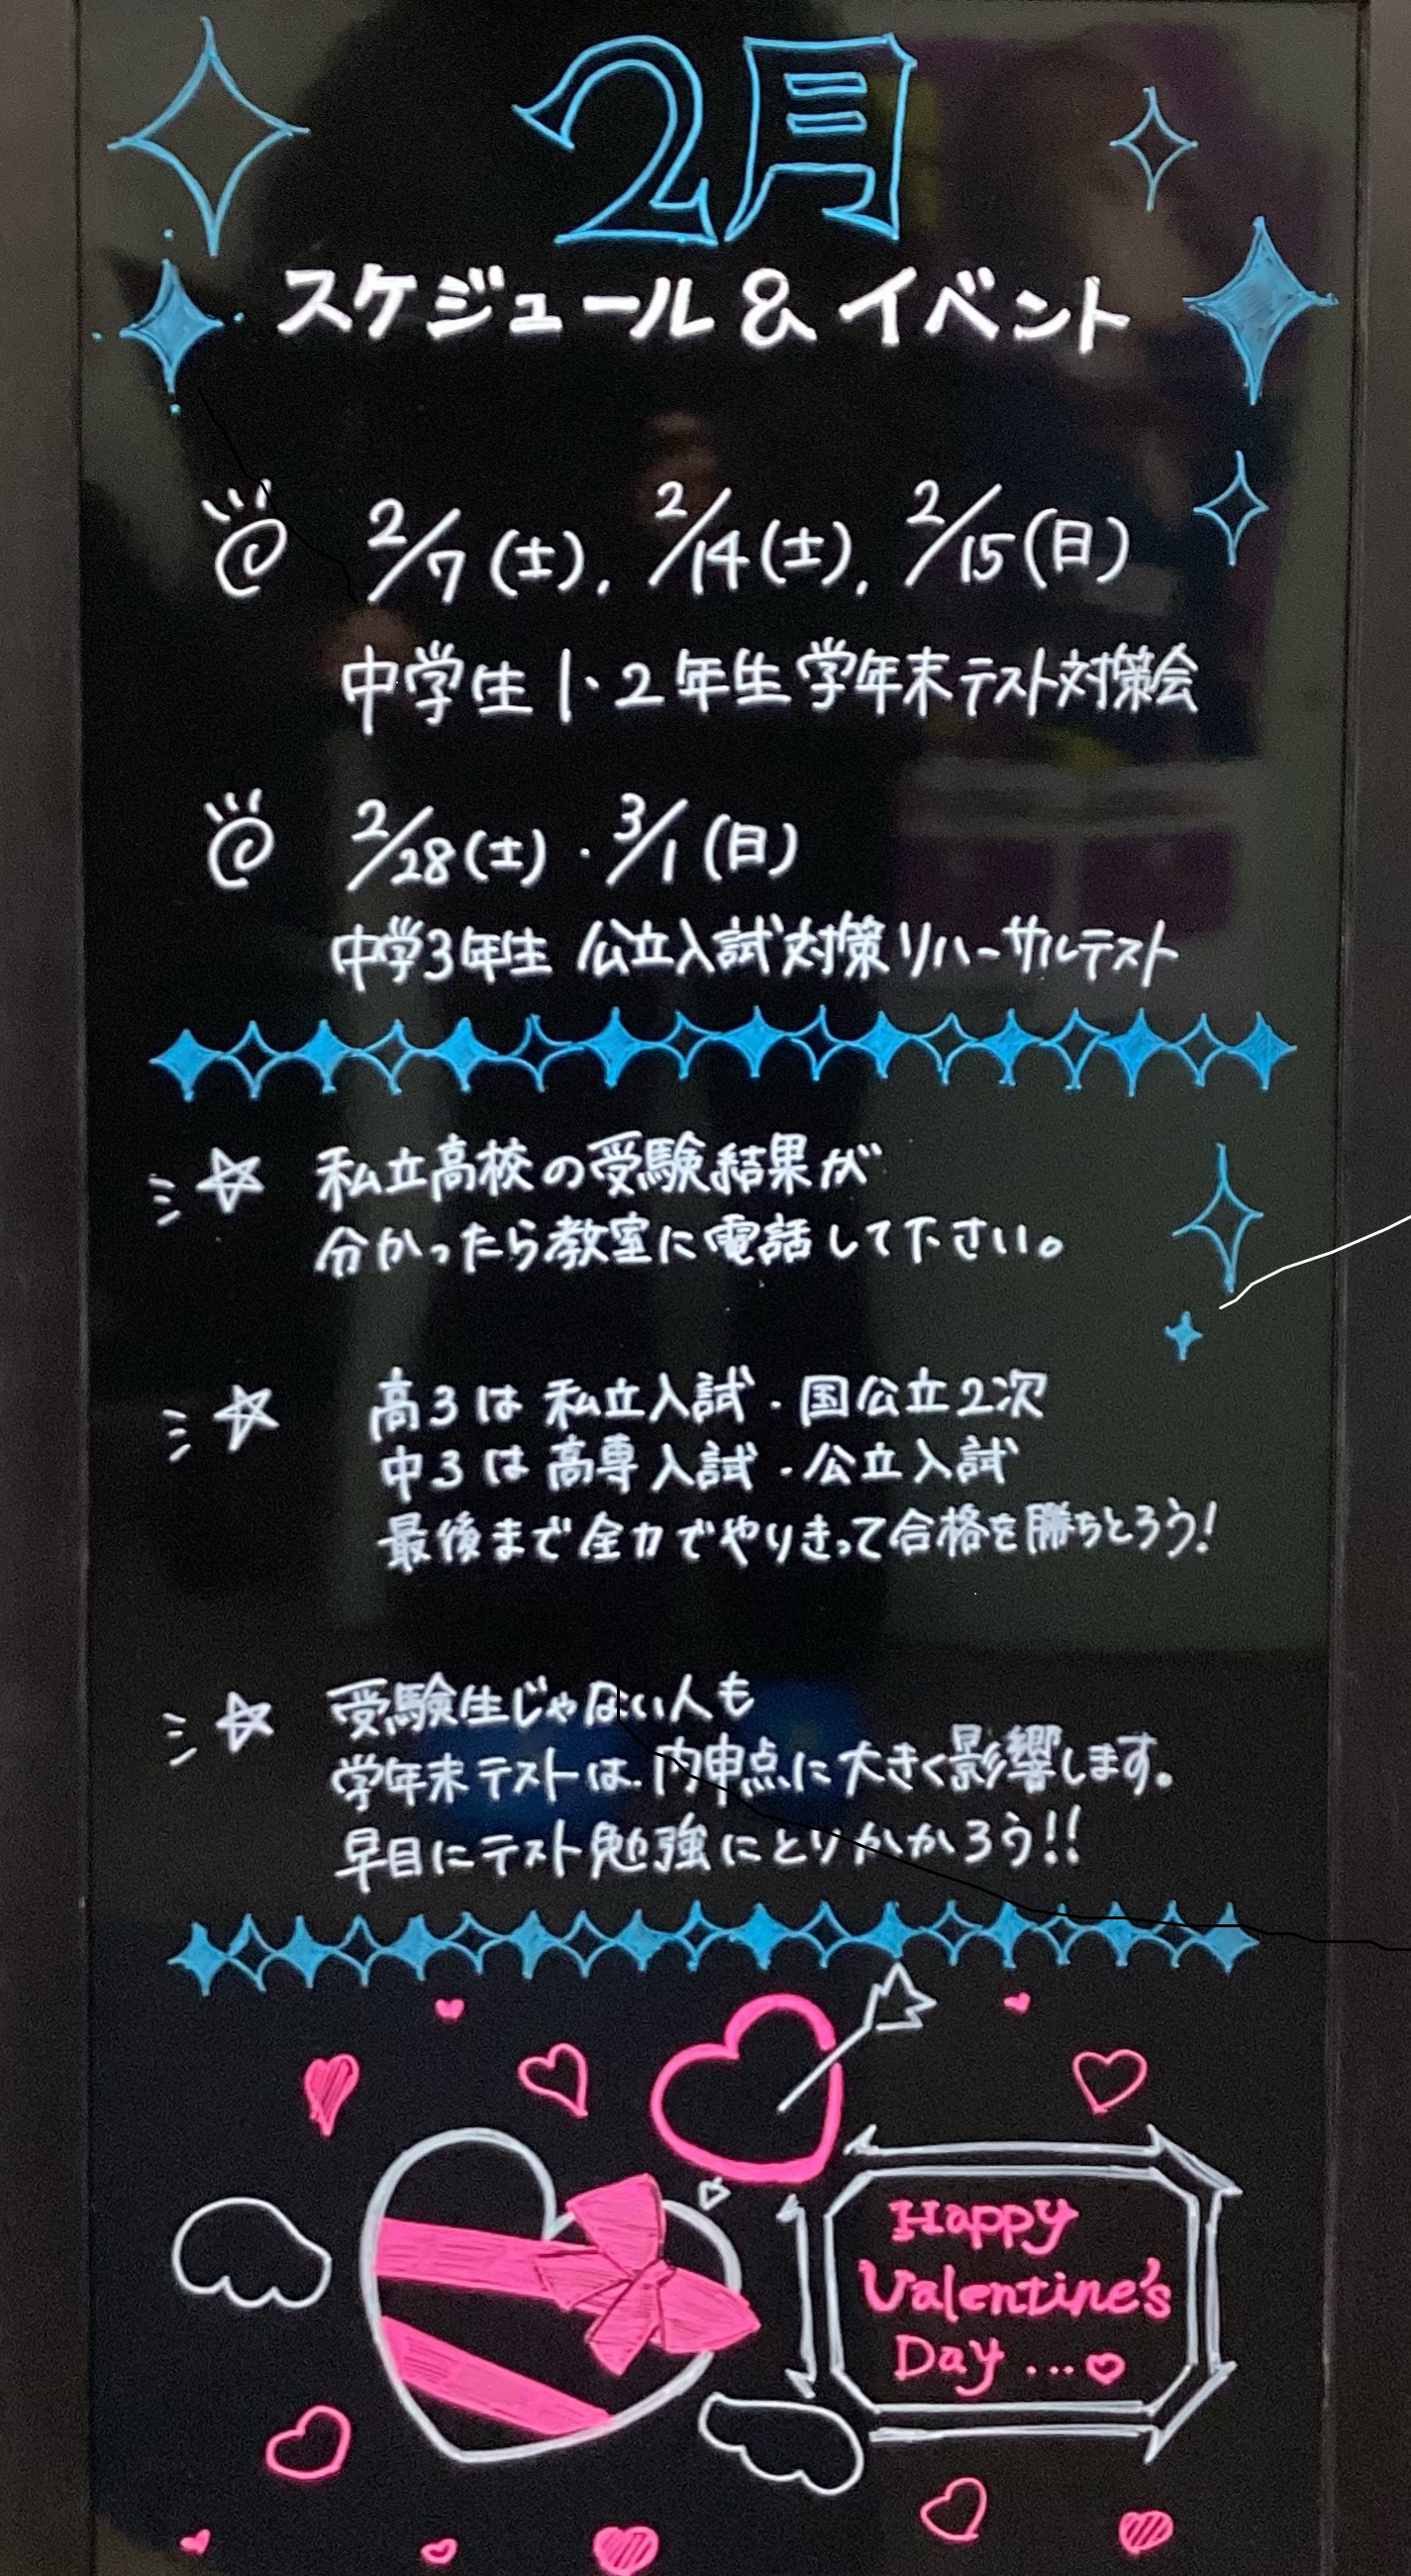 2月
スケジュール & イベント
2/7(土), 2/14(土), 2/15(日)
中学生1・2年生学年末テスト対策会
2/28(土)・3/1(日)
中学3年生 公立入試対策リハーサルテスト
私立高校の受験結果が
分かったら教室に電話して下さい。
高3は私立入試・国公立2次
中3は高専入試・公立入試
最後まで全力でやりきって合格を勝ちとろう!
受験生じゃない人も
学年末テストは、内申点に大きく影響します。
早目にテスト勉強にとりかかろう!!
Happy
Valentine's
Day ...♡